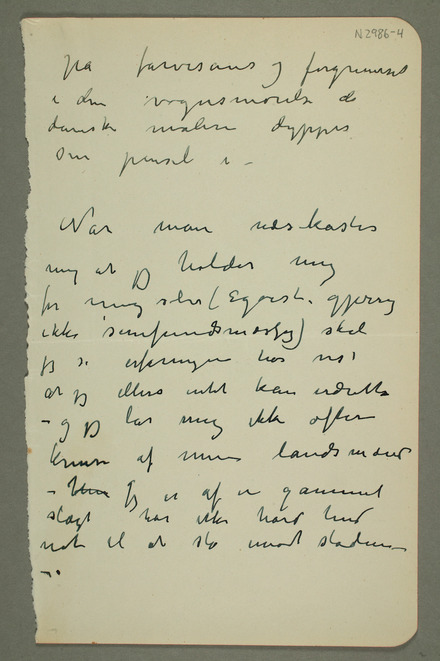 N 2986-4
på farvesans og forgrenet
i den vognsmørelse de
danske malere dyppes
sin pensel i –
Når man udskasted
mig at jeg holder mig
for mig selv (Egoist, gjerrig
ikke samfundsmæssig) skal
jeg si erfaringen har vist
at jeg ellers intet kan udrette
– og jeg lar mig ikke ofte
af mine landsmænd
– Jeg er af en gammel
slægt har ikke hård hud
nok til at stå imod stadens